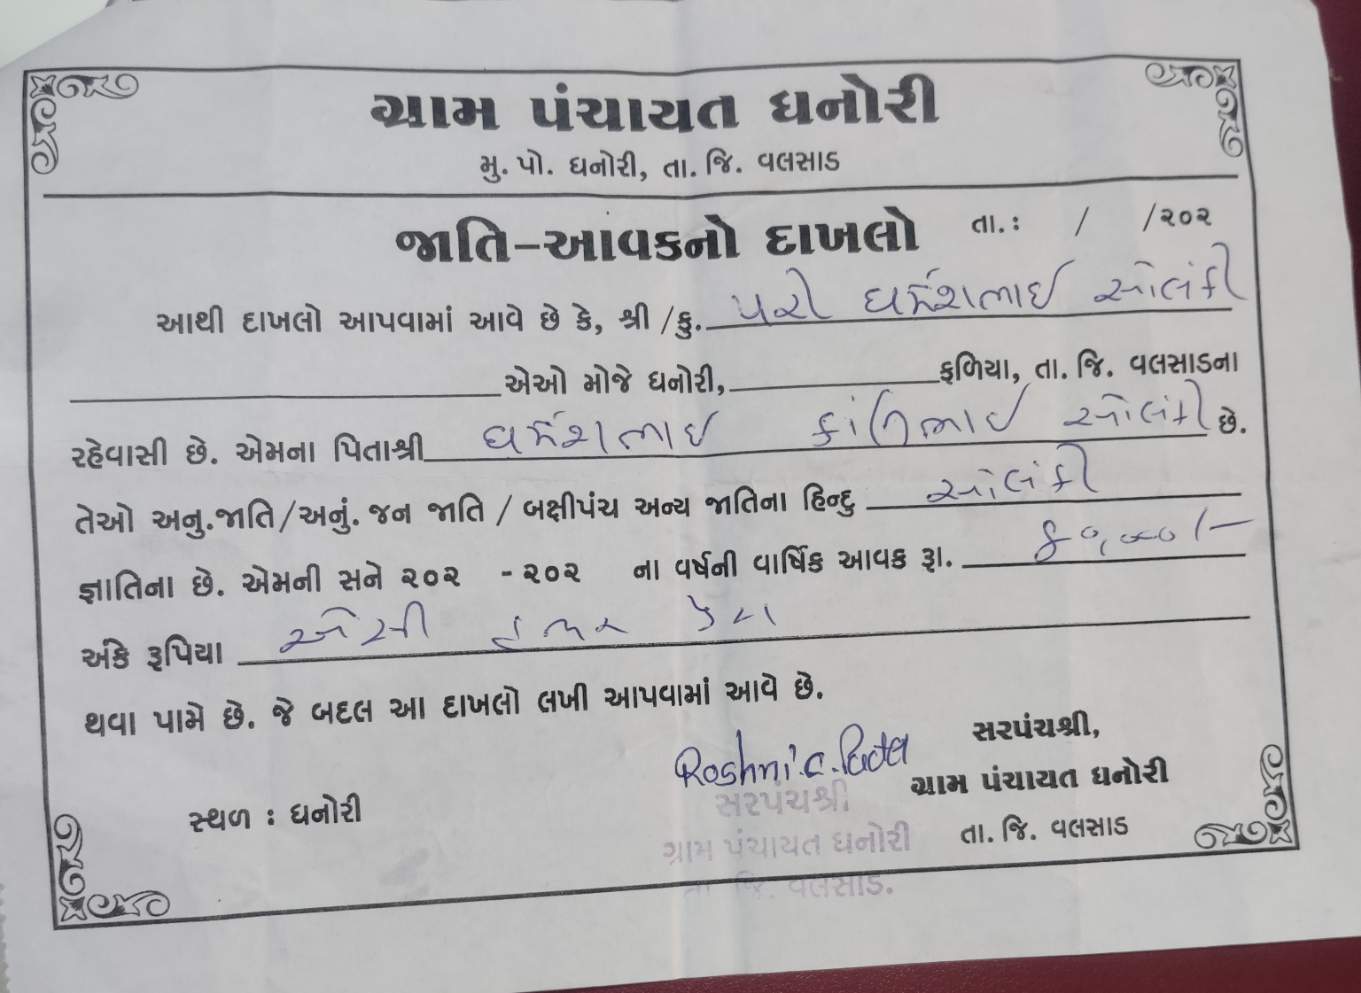 ગ્રામ પંચાયત ધનોરી
મુ. પો. ધનોરી, તા. જિ. વલસાડ
જાતિ-આવકનો દાખલો તા. : / /૨૦૨
આથી દાખલો આપવામાં આવે છે કે, શ્રી /કુ. પરી ધર્મેશભાઈ સોલંકી
એઓ મોજે ધનોરી, ફળિયા, તા. જિ. વલસાડના
રહેવાસી છે. એમના પિતાશ્રી ધર્મેશભાઈ કાંતિભાઈ સોલંકી છે.
તેઓ અનુ.જાતિ/અનું. જન જાતિ / બક્ષીપંચ અન્ય જાતિના હિન્દુ સોલંકી
જ્ઞાતિના છે. એમની સને ૨૦૨ - ૨૦૨ ના વર્ષની વાર્ષિક આવક રૂા.
અંકે રૂપિયા હજાર
થવા પામે છે. જે બદલ આ દાખલો લખી આપવામાં આવે છે.
Roshni.c.Patel સરપંચશ્રી,
સરપંચશ્રી ગ્રામ પંચાયત ધનોરી
સ્થળ : ધનોરી ગ્રામ પંચાયત ધનોરી તા. જિ. વલસાડ
તા જિ. વલસાડ.